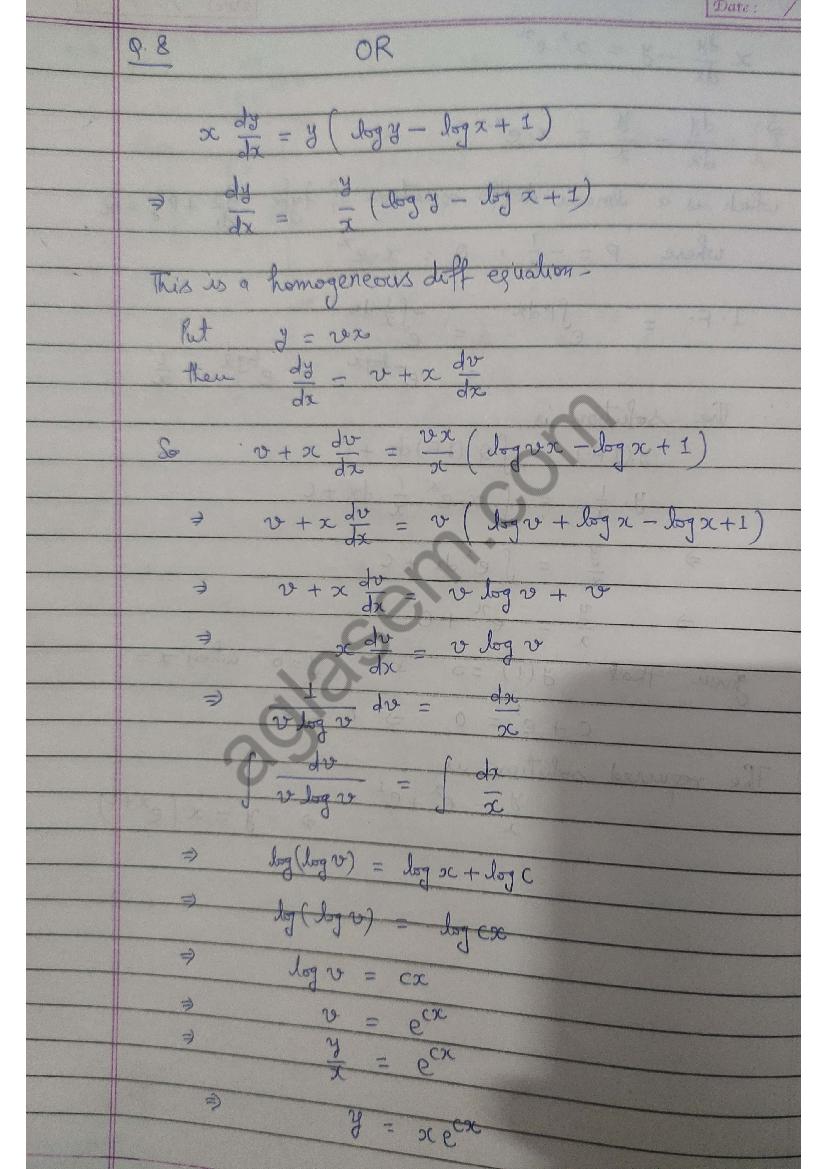 Date: /
Q.8 OR
x dy/dx = y ( log y - log x + 1 )
⇒ dy/dx = y/x (log y - log x + 1)
This is a homogeneous diff equation-
Put y = vx
then dy/dx = v + x dv/dx
So v + x dv/dx = vx/x ( log vx - log x + 1 )
⇒ v + x dv/dx = v ( log v + log x - log x + 1 )
⇒ v + x dv/dx = v log v + v
⇒ x dv/dx = v log v
⇒ 1/(v log v) dv = dx/x
∫ dv/(v log v) = ∫ dx/x
⇒ log(log v) = log x + log c
⇒ log(log v) = log cx
⇒ log v = cx
⇒ v = e^cx
⇒ y/x = e^cx
⇒ y = x e^cx
aglasem.com